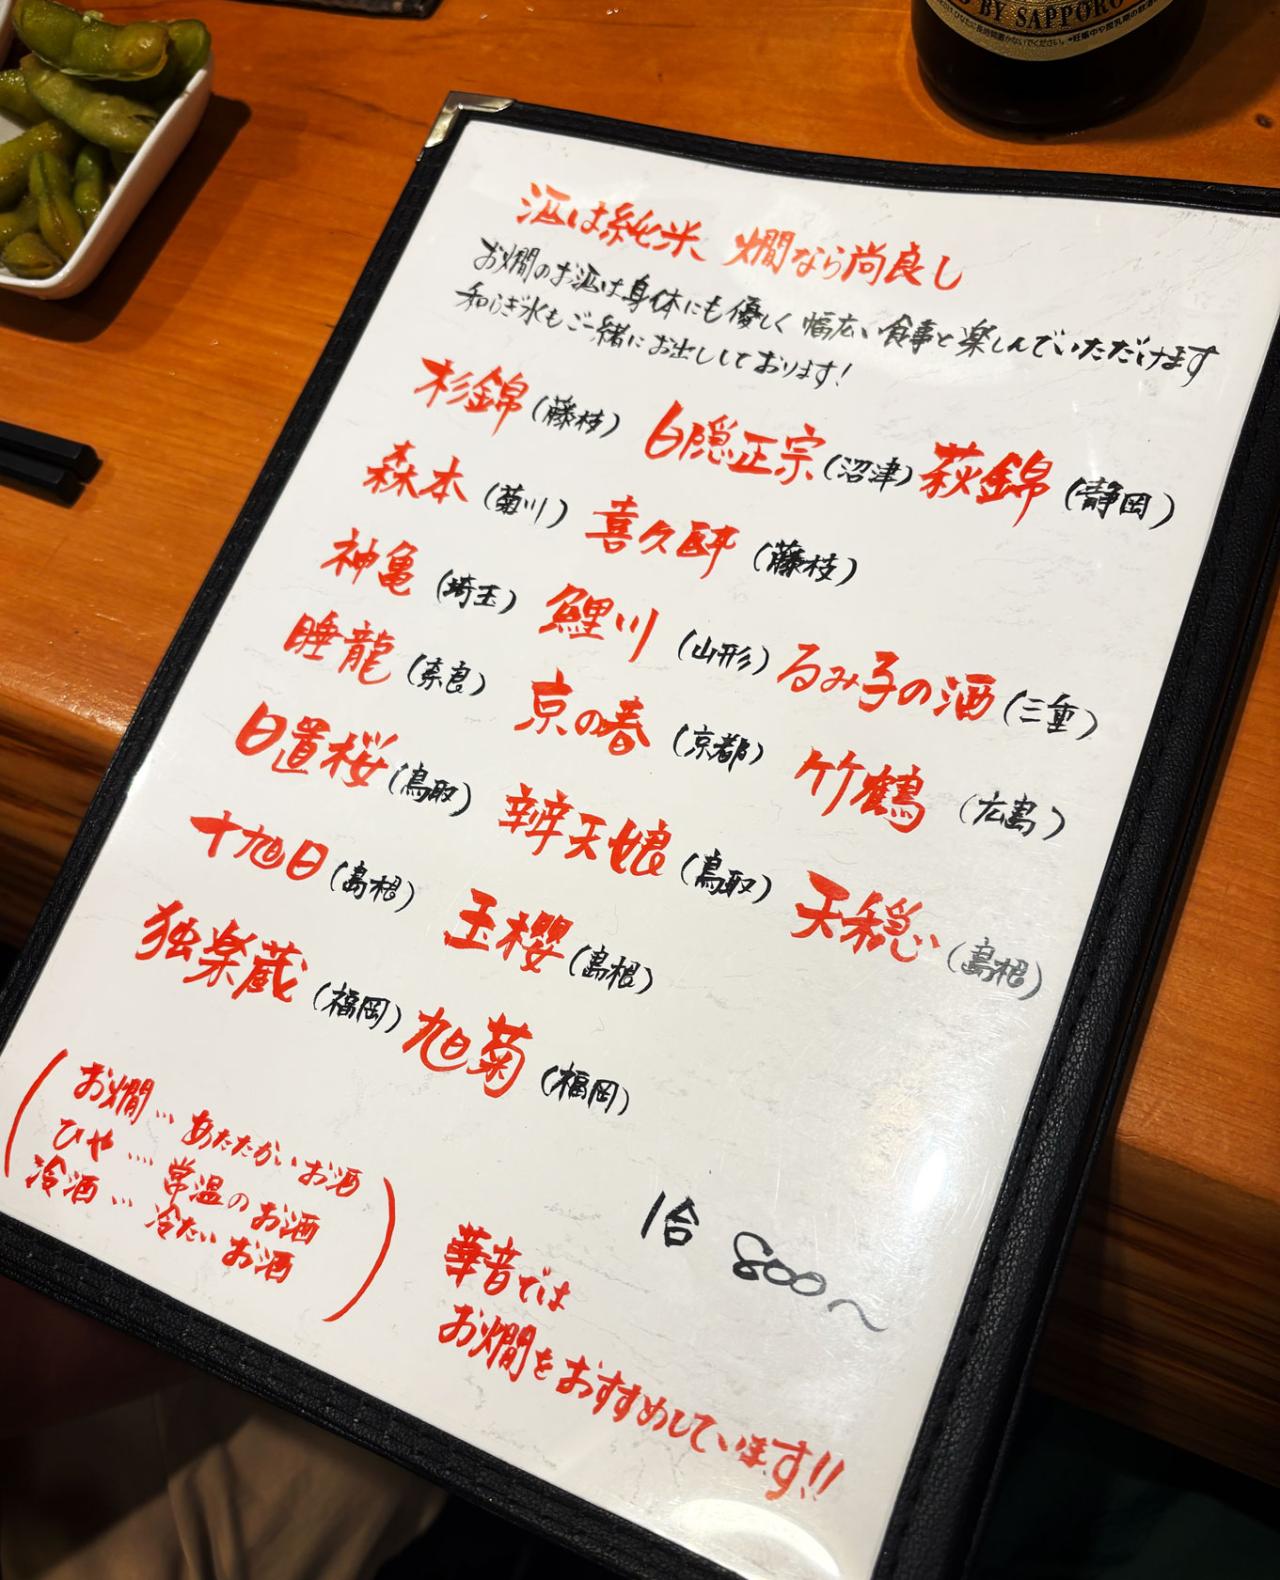 BY SAPPORO
酒は純米、燗なら尚良し
お燗のお酒は身体にも優しく幅広い食事と楽しんでいただけます
和らぎ水もご一緒にお出ししております!
杉錦(藤枝) 白隠正宗(沼津) 萩錦(静岡)
森本(菊川) 喜久酔(藤枝)
神亀(埼玉) 鯉川(山形) るみ子の酒(三重)
睡龍(奈良) 京の春(京都) 竹鶴(広島)
日置桜(鳥取) 辨天娘(鳥取) 天穏(島根)
十旭日(島根) 玉櫻(島根)
独楽蔵(福岡) 旭菊(福岡)
お燗…あたたかいお酒
ひや…常温のお酒
冷酒…冷たいお酒
1合 800〜
華音では
お燗をおすすめしています!!